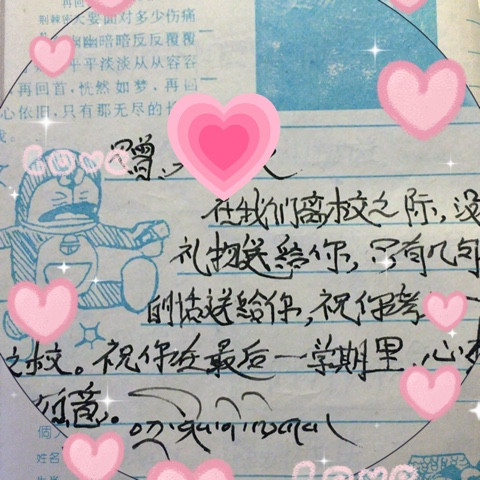 再回
荆棘密
要面对多少伤痛
幽幽暗暗反反覆覆
平平淡淡从从容容
再回首,恍然如梦,再回
心依旧,只有那无尽的长
我。
赠
love
在我们离校之际,没
礼物送给你,只有几句
的话送给你,祝你考
之校。祝你在最后一学期里,心想
如意。
姓名
love